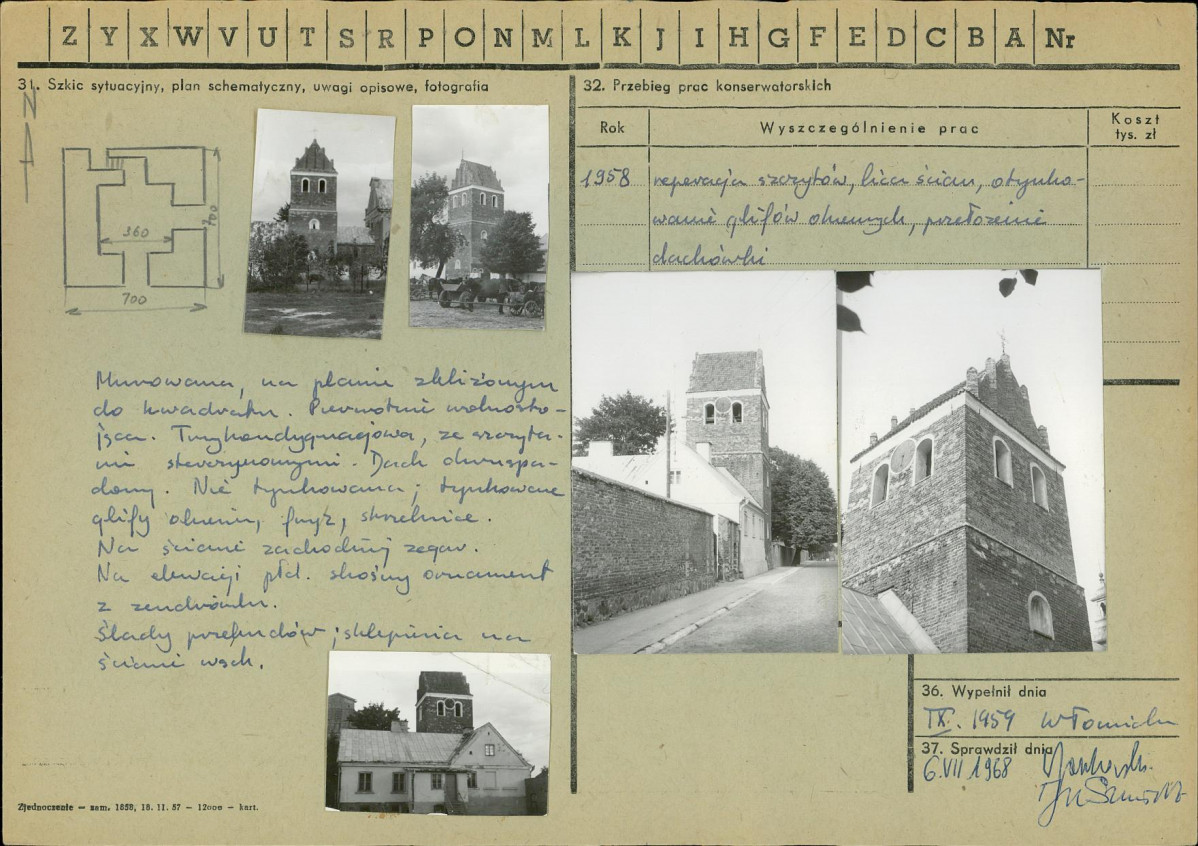 Z Y X W V U T S R P O N M L K J I H G F E D C B A Nr
31. Szkic sytuacyjny, plan schematyczny, uwagi opisowe, fotografia
N
360
700
700
Murowana, na planie zbliżonym
do kwadratu. Pierwotnie wolnosto-
jąca. Trzykondygnacjowa, ze szczyta-
mi sterczynowymi. Dach dwuspa-
dowy. Nie tynkowana; tynkowane
glify okienne, fryz, strzelnice.
Na ścianie zachodniej zegar.
Na elewacji płd. skośny ornament
z zendrówki.
Ślady przebudów; sklepienia na
ścianie wsch.
Zjednoczenie — zam. 1658, 18. 11. 57 — 12000 — kart.
32. Przebieg prac konserwatorskich
Rok Wyszczególnienie prac Koszt
tys. zł
1958 reperacja szczytów, lica ścian, otynko-
wanie glifów okiennych, przełożenie
dachówki
36. Wypełnił dnia
IX. 1959
37. Sprawdził dnia
6.VII 1968